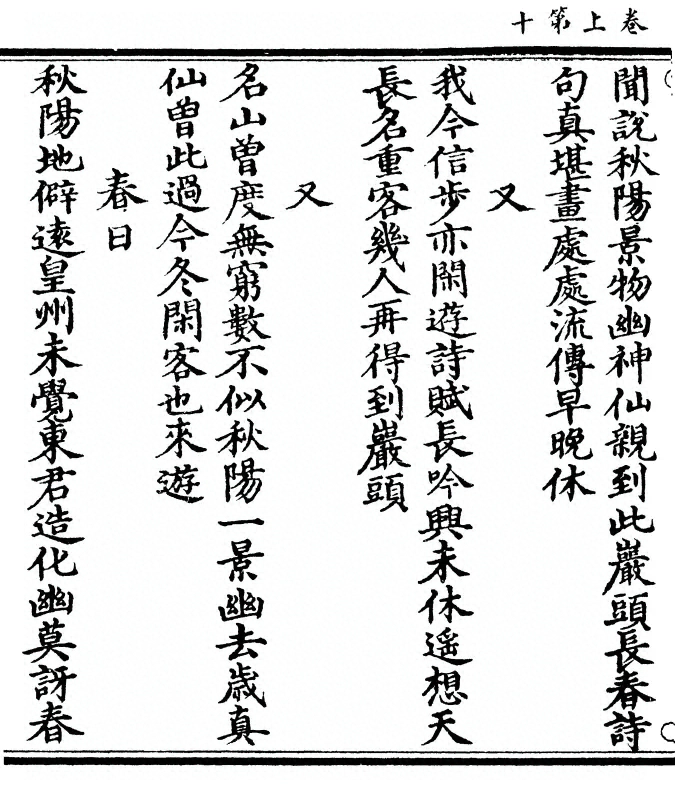 卷上第十
聞說秋陽景物幽神仙親到此巖頭長春詩
句真堪畫處處流傳早晚休
又
我今信步亦閑遊詩賦長吟興未休遙想天
長名重客幾人再得到巖頭
又
名山曾度無窮數不似秋陽一景幽去歲真
仙曾此過今冬閑客也來遊
春日
秋陽地僻遠皇州未覺東君造化幽莫訝春